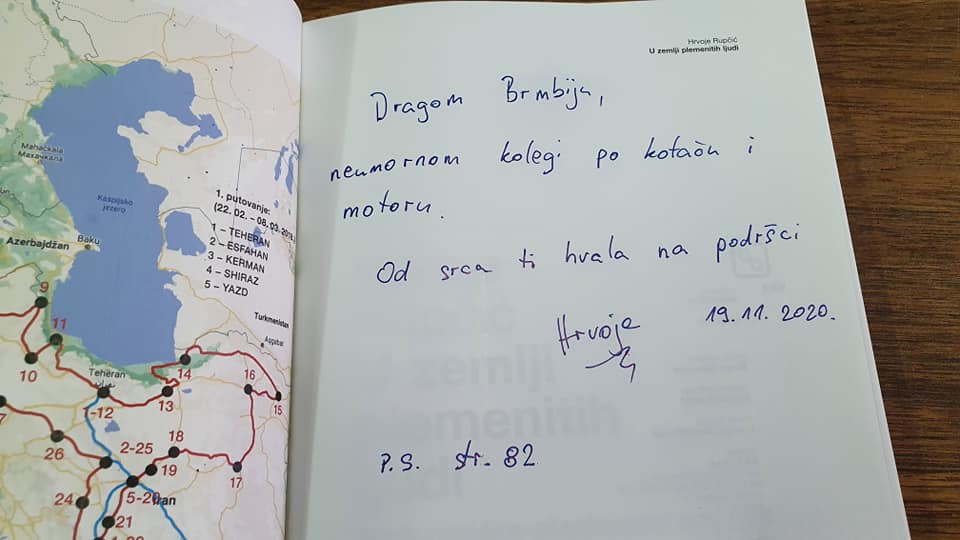 Hrvoje Rupčić
U zemlji plemenitih ljudi
Dragom Brmbiju,
neumornom kolegi po kotaču i
motoru.
Od srca ti hvala na podršci
Hrvoje
19.11.2020.
P.S. str. 82
Mahačkala
Махачкала
Kaspijsko
jezero
Azerbajdžan
Baku
1. putovanje:
(22. 02. – 08. 03.
1 – TEHERAN
2 – ESFAHAN
3 – KERMAN
4 – SHIRAZ
5 – YAZD
Turkmenistan
Aşgabat
9
11
10
Teheran
14
16
15
13
1-12
7
26
2-25
18
19
17
24
Iran
21
zemlji
plemenitih